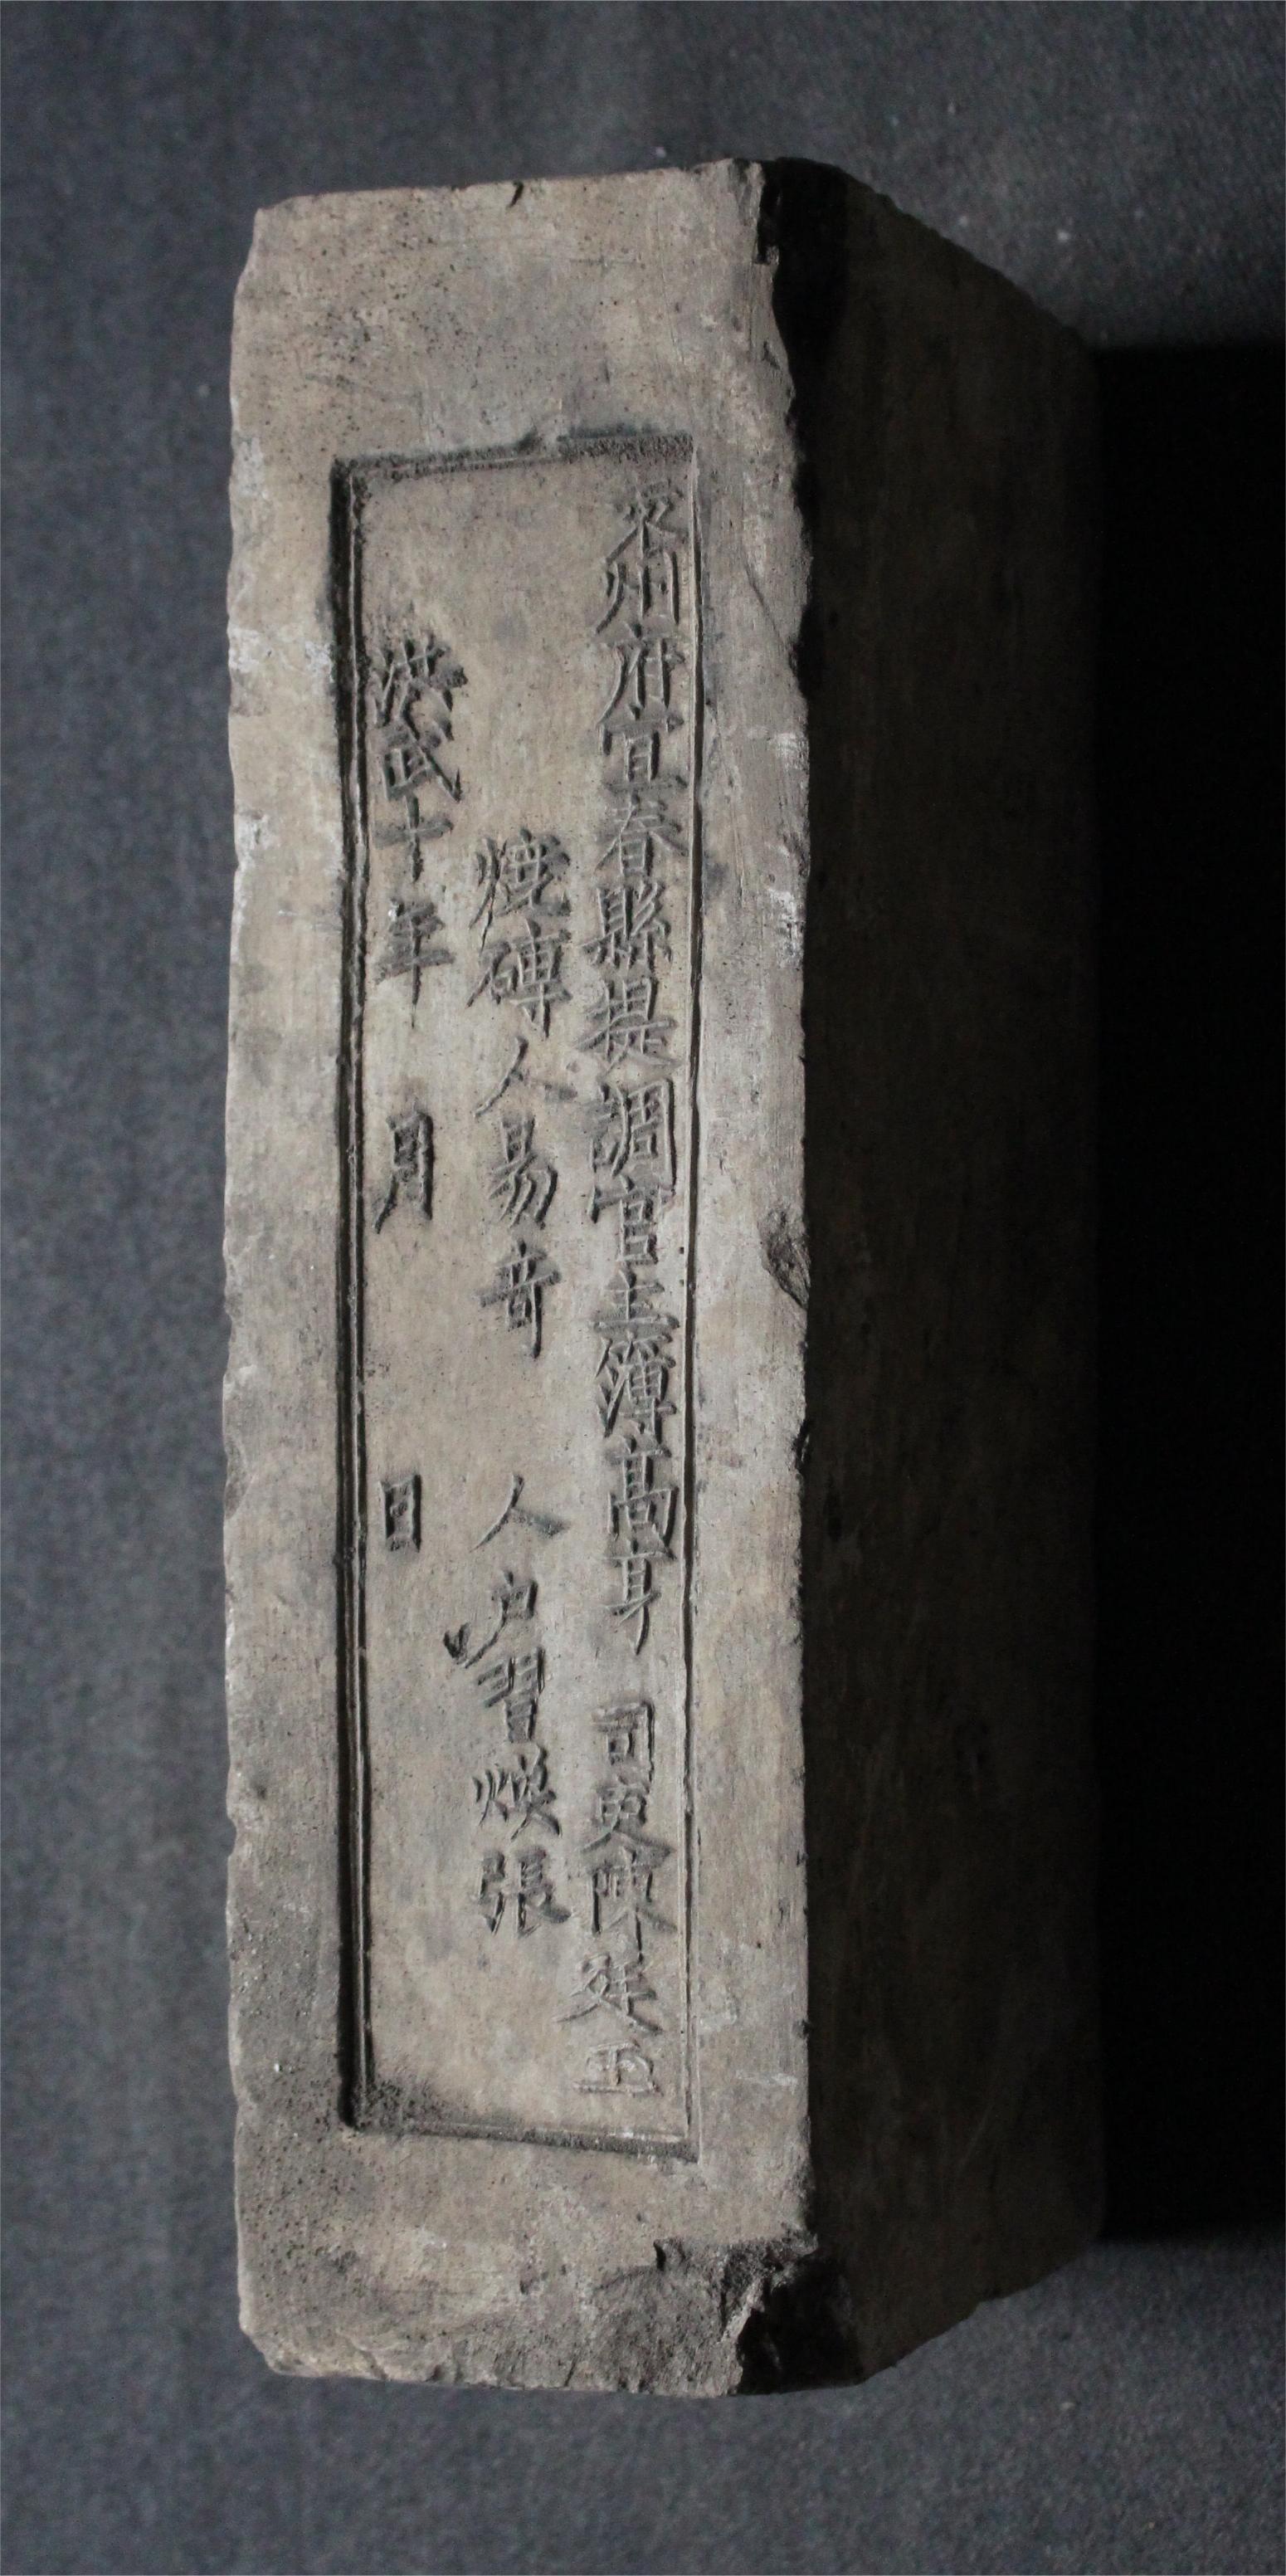 袁州府宜春縣提調官主簿高亨 司吏陳廷玉
燒磚人易奇 人戶習煥張
洪武十年 月 日